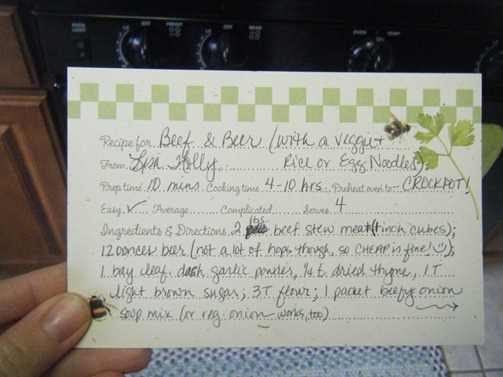 OFF
FRONT
OFF
REAR
OVEN
TEMP
Recipe for Beef & Beer (with a veggie +
From Lisa Kelly Rice or Egg Noodles)
Prep time 10 mins Cooking time 4-10 hrs Preheat oven to CROCKPOT!
Easy ✓ Average Complicated Serves 4
Ingredients & Directions 2 lbs beef stew meat (1 inch cubes);
12 ounces beer (not a lot of hops though, so CHEAP is fine! :));
1 bay leaf, dash garlic powder, ¼ t. dried thyme, 1 T
light brown sugar; 3T flour; 1 packet beefy onion
soup mix (or reg. onion works, too)